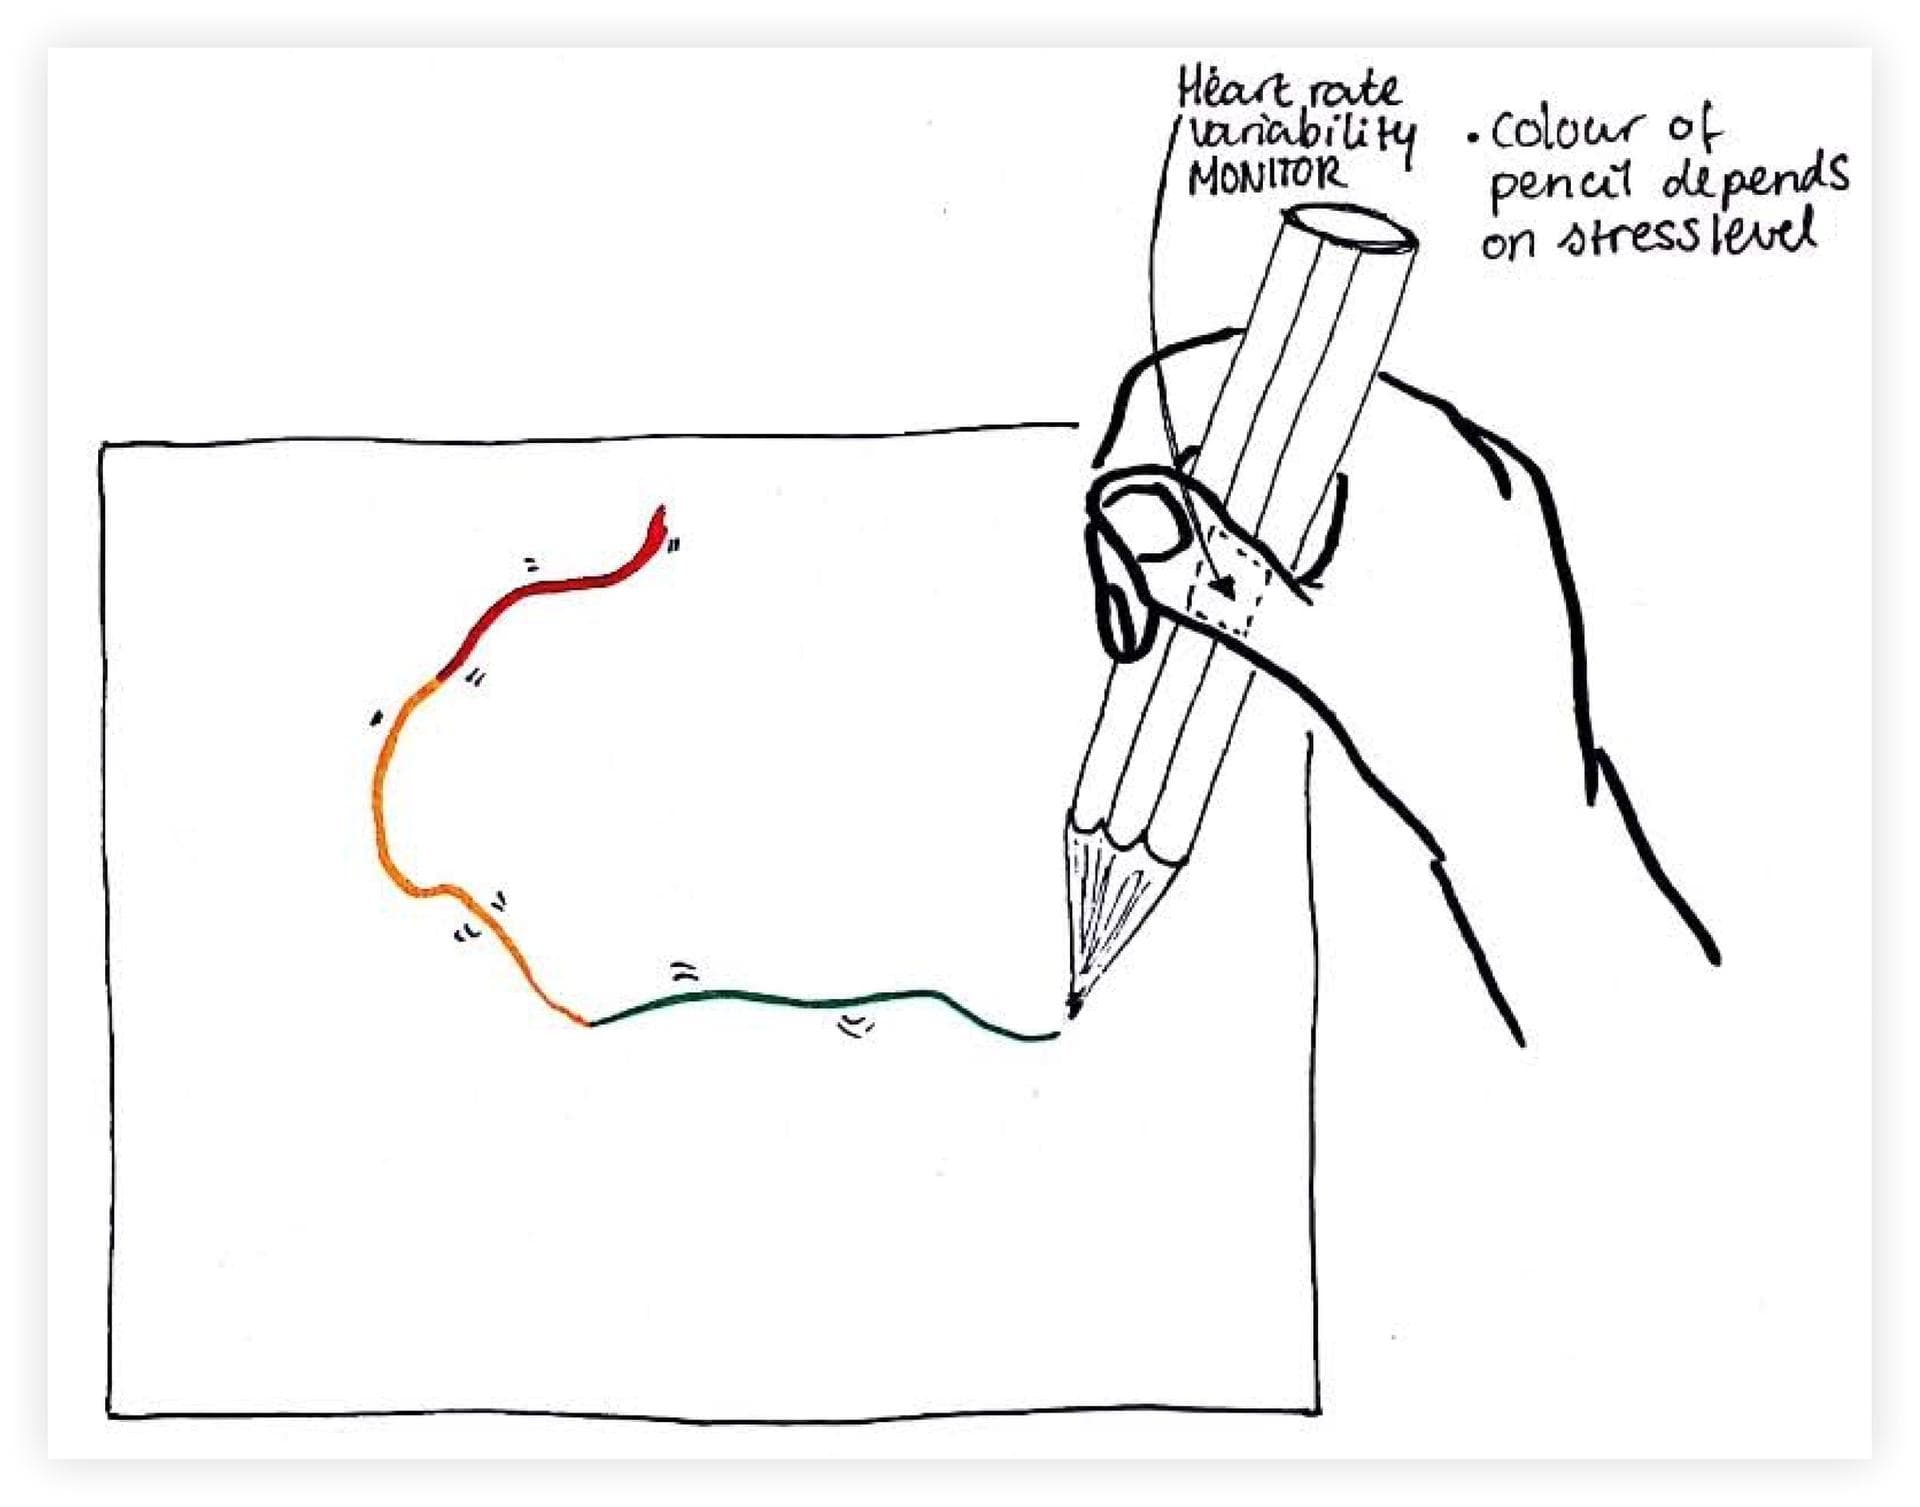 Heart rate
variability
MONITOR
• Colour of
pencil depends
on stress level